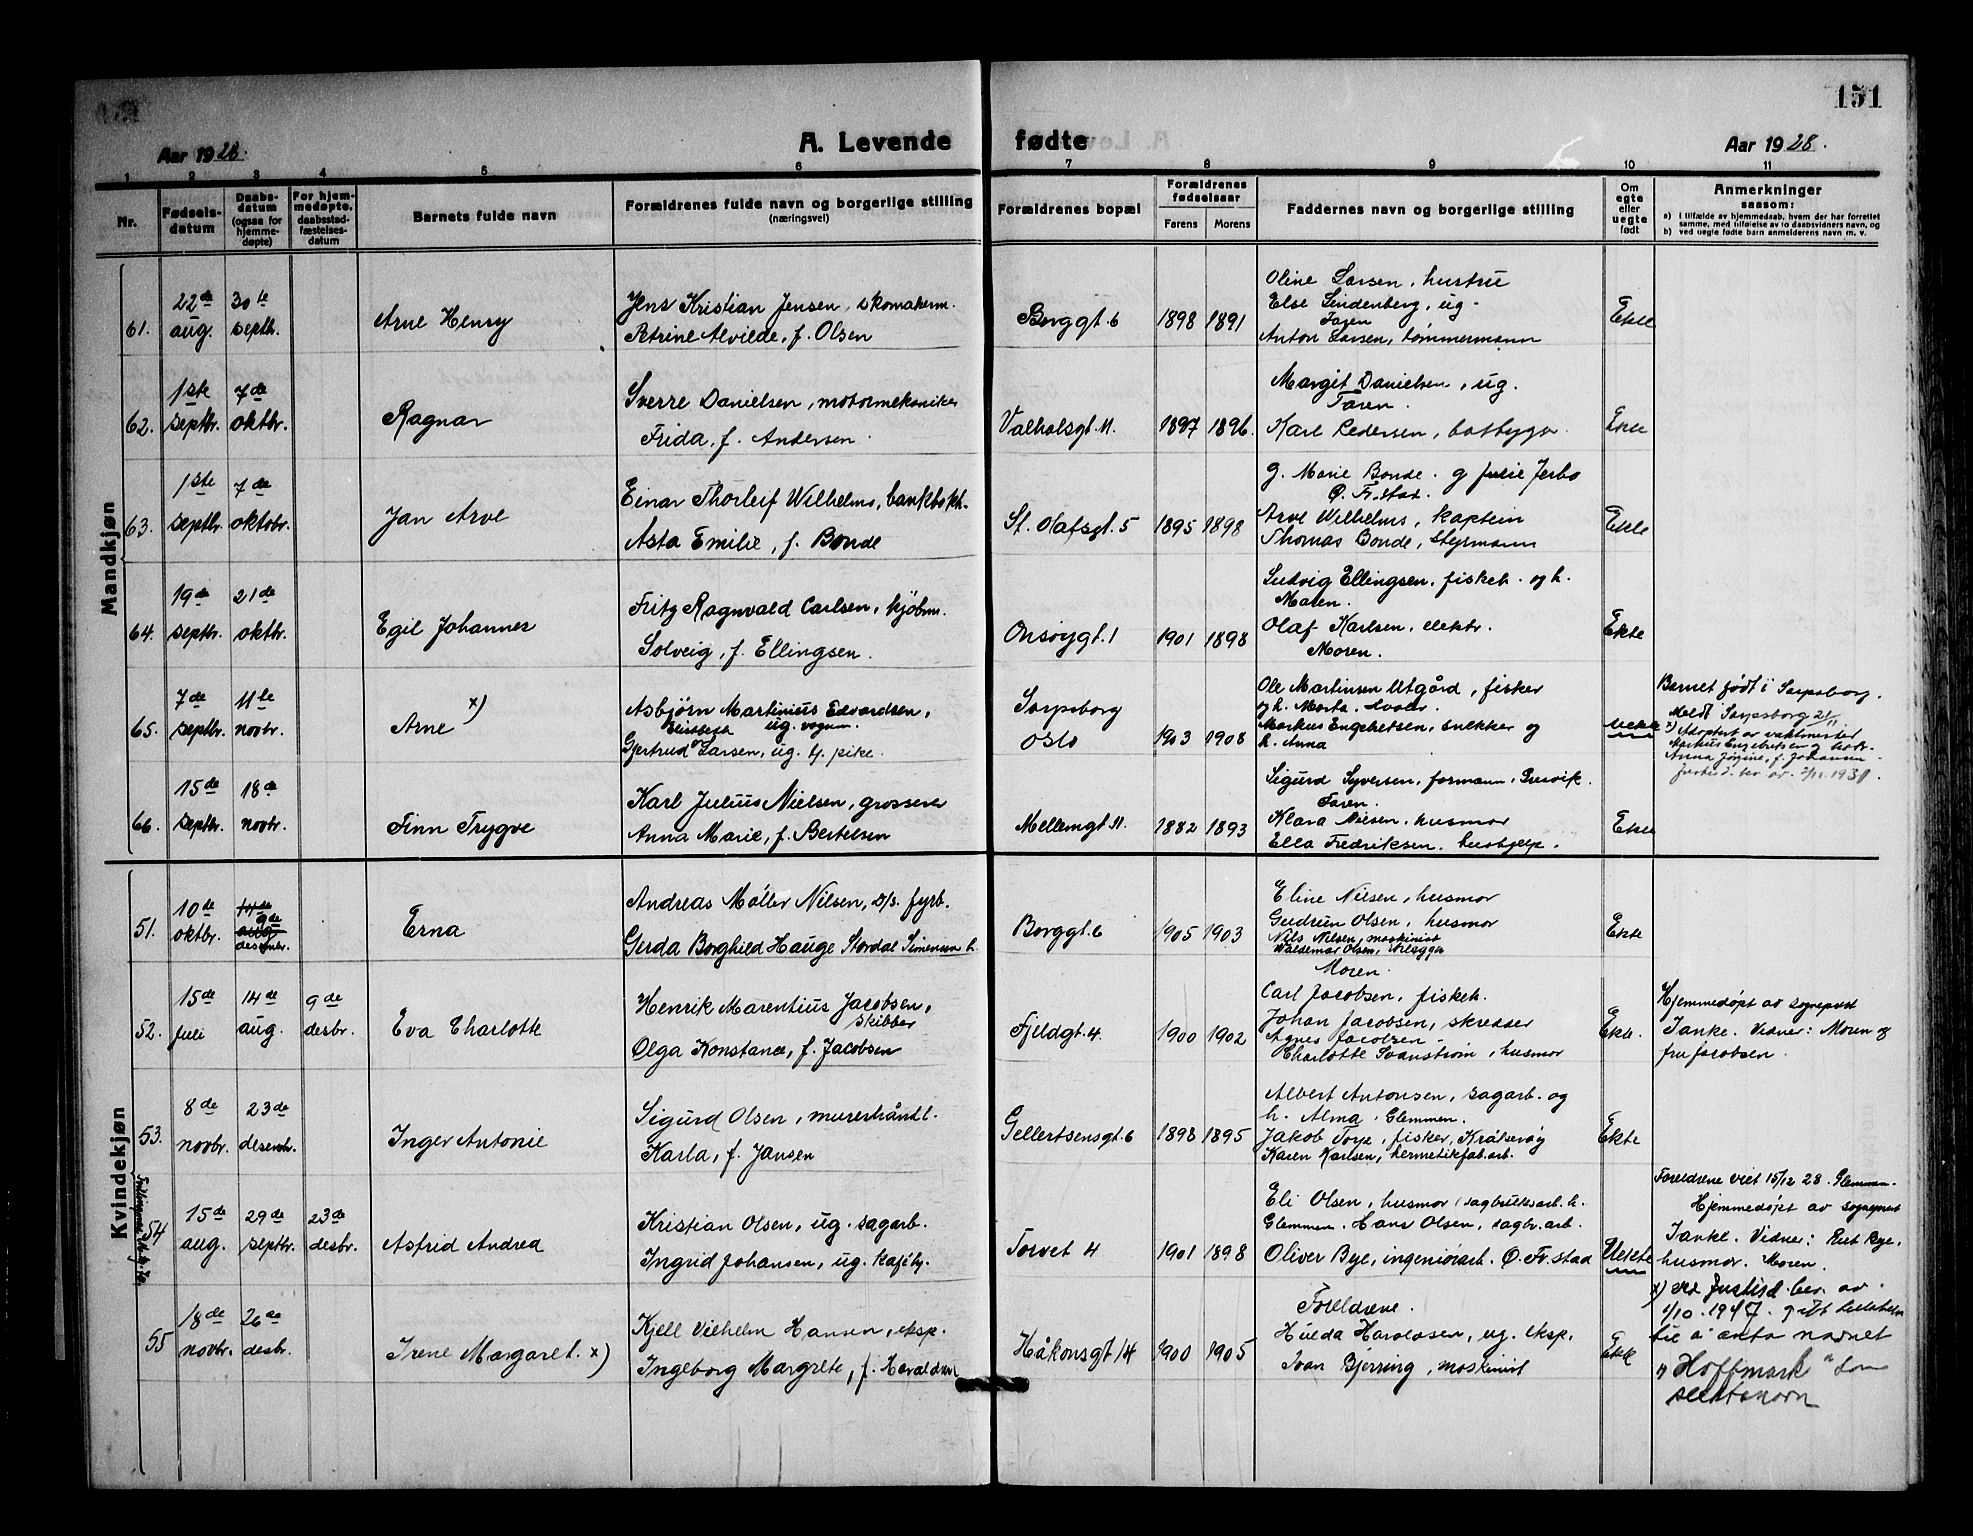 151
Aar 1928.
A. Levende
fødte
Aar 1928.
1 2 3 4 5 6 7 8 9 10 11
Nr.
Fødsels-
datum
Daabs-
datum
(ogsaa for
hjemme-
døpte)
For hjem-
medøpte,
daabsstad-
fæstelses-
datum
Barnets fulde navn
Forældrenes fulde navn og borgerlige stilling
(næringsvei)
Forældrenes bopæl
Forældrenes
fødselsaar
Farens Morens
Faddernes navn og borgerlige stilling
Om
egte
eller
uegte
født
Anmerkninger
saasom:
a) I tilfælde av hjemmedaab, hvem der har forrettet
samme, med tilføielse av to daabsvidners navn, og
b) ved uegte fødte barn anmelderens navn m. v.
Mandkjøn
61.
22de
aug.
30te
septbr.
Arne Henry
Jens Kristian Jensen, skomakerm.
Petrine Alvilde, f. Olsen
Borggt. 6
1898 1891
Oline Larsen, hustru
Else Lindenberg, ug.
Faren
Anton Larsen, tømmermann
Ekte
62.
1ste
septbr.
7de
oktbr.
Ragnar
Sverre Danielsen, motormekaniker
Frida, f. Andersen.
Valhalsgt. 11.
1897 1896.
Margit Danielsen, ug.
Faren.
Karl Pedersen, båtbygger
Ekte
63.
1ste
septbr.
7de
oktobr.
Jan Arve
Einar Thorleif Wilhelms, bankbokh.
Asta Emilie, f. Bonde
St. Olafsgt. 5
1895 1898
G. Marie Bonde. g Julie Jerbo
Ø. Fr.stad.
Arve Wilhelms, kaptein
Thomas Bonde, styrmann
Ekte
64.
19de
septbr.
21de
oktbr.
Egil Johannes
Fritz Ragnvald Carlsen, kjøbm.
Solveig, f. Ellingsen.
Onsøygt. 1
1901 1898
Ludvig Ellingsen, fiskeh. og h.
Maren.
Olaf Karlsen, elektr.
Moren.
Ekte
65.
7de
septbr.
11te
novbr.
Arne x)
Asbjørn Martinius Edvardsen,
Elisabeth ug. vognm.
Gjertrud Larsen, ug. tj. pike.
Sarpsborg
Oslo
1903 1908
Ole Martinsen Utgård, fisker
og h. Marta. Hvaler.
Markus Engebretsen, snekker og
h. Anna
Uekte
Barnet født i Sarpsborg.
Meldt Sarpsborg 21/11.
x) Adoptert av vaktmester
Markus Engebretsen og hustr.
Anna Jørgine, f. Johansen
Justisd. bev. av 2/11. 1931.
66.
15de
septbr.
18de
novbr.
Finn Trygve
Karl Julius Nielsen, grosserer
Anna Marie, f. Bertelsen
Mellemgt. 11.
1882 1893
Sigurd Syversen, formann, Gresvik.
Faren.
Klara Nielsen, husmor
Ella Fredriksen. hushjelp.
Ekte
Kvindekjøn
51.
10de
oktbr.
14de
9de
aug.
desembr.
Erna
Andreas Møller Nilsen, D/S. fyrb.
Gerda Borghild Hauge Stordal Simensen h.
Borggt. 6
1905 1903
Eline Nilsen, husmor
Gudrun Olsen, husmor
Nils Nilsen, maskinist
Valdemar Olsen, rørlegger
Moren.
Ekte
52.
15de
juli
14de
aug.
9de
desbr.
Eva Charlotte
Henrik Marentius Jacobsen,
skibber
Olga Konstance, f. Jacobsen
Fjeldgt. 4.
1900 1902
Carl Jacobsen, fiskeh.
Johan Jacobsen, skredder
Agnes Jacobsen
Charlotte Svanstrøm, husmor
Ekte.
Hjemmedøpt av sogneprest
Tanke. Vidner: Moren og
fru Jacobsen.
53.
8de
novbr.
23de
desembr.
Inger Antonie
Sigurd Olsen, murerhåndl.
Karla, f. Jansen
Gellertsensgt. 6
1898 1895
Albert Antonsen, sagarb. og
h. Alma, Glemmen.
Jakob Torp, fisker, Kråkerøy
Karen Karlsen, hermetikfab.arb.
Ekte
54
15de
aug.
29de
septbr.
23de
desbr.
Astrid Andrea
Kristian Olsen, ug. sagarb.
Ingrid Johansen, ug. kaféhj.
Torvet 4
1901 1898
Eli Olsen, husmor, sagbruksarb. h.
Glemmen. Hans Olsen, sagbr.arb.
Oliver Bye, ingeniørarb. Ø. Fr.stad
Uekte
Foreldrene viet 15/12 28. Glemmen.
Hjemmedøpt av sogneprest
Tanke. Vidner: Bye,
husmor. Moren.
55
18de
novbr.
26de
desbr.
Irene Margaret. x)
Kjell Vilhelm Hansen, eksp.
Ingeborg Margrete, f. Haraldsen
Håkonsgt 14
1900 1905
Foreldrene.
Hulda Haraldsen, ug. eksp.
Ivar Bjerring, maskinist
Ekte
x) Ved Justisd. bev. av
1/10. 1947. gitt tillatelse
til å anta navnet
"Hoffmark" som
slektsnavn